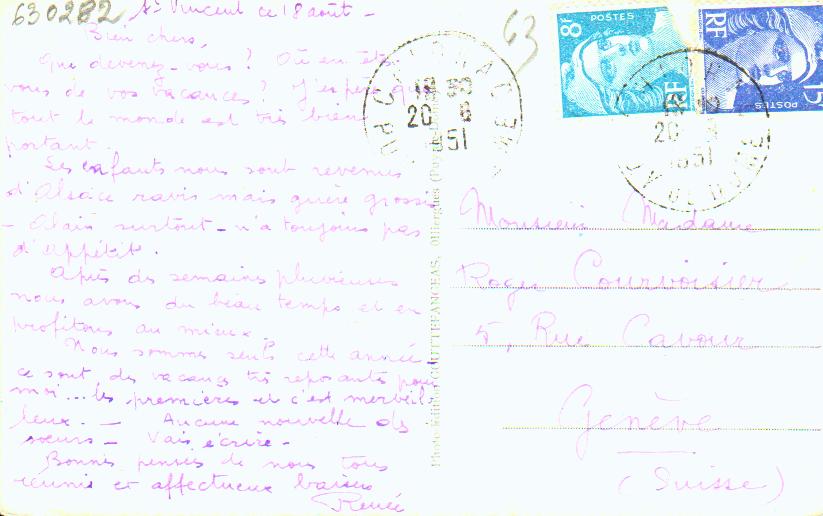 630282
St Vincent ce 18 août -
Bien chers,
Que devenez-vous? Où en êtes
vous de vos vacances? J'espère que
tout le monde est très bien
portant.
Les enfants nous sont revenus
d'Alsace ravis mais guère grossis
- Alain surtout - n'a toujours pas
d'appétit.
Après des semaines pluvieuses
nous avons du beau temps et en
profitons au mieux
Nous sommes seuls cette année -
ce sont des vacances très reposantes pour
moi... les premières et c'est merveil-
leux. - Aucune nouvelle des
soeurs - Vais écrire -
Bonnes pensées de nous tous
réunis et affectueux baisers
Renée
63
8F POSTES RF
RF POSTES 15
20 8
1951
20
1951
Photo Édition GOUTTEFANGEAS, Olliergues (Puy-de-Dôme)
Monsieur Madame
Roger Courvoisier
5, Rue Cavour
Genève
(Suisse)